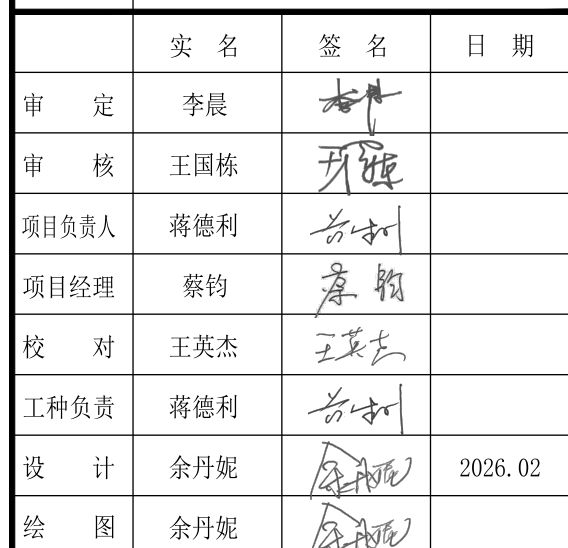 实 名 签 名 日 期
审 定 李晨 李晨
审 核 王国栋 王国栋
项目负责人 蒋德利 蒋德利
项目经理 蔡钧 蔡钧
校 对 王英杰 王英杰
工种负责 蒋德利 蒋德利
设 计 余丹妮 余丹妮 2026.02
绘 图 余丹妮 余丹妮